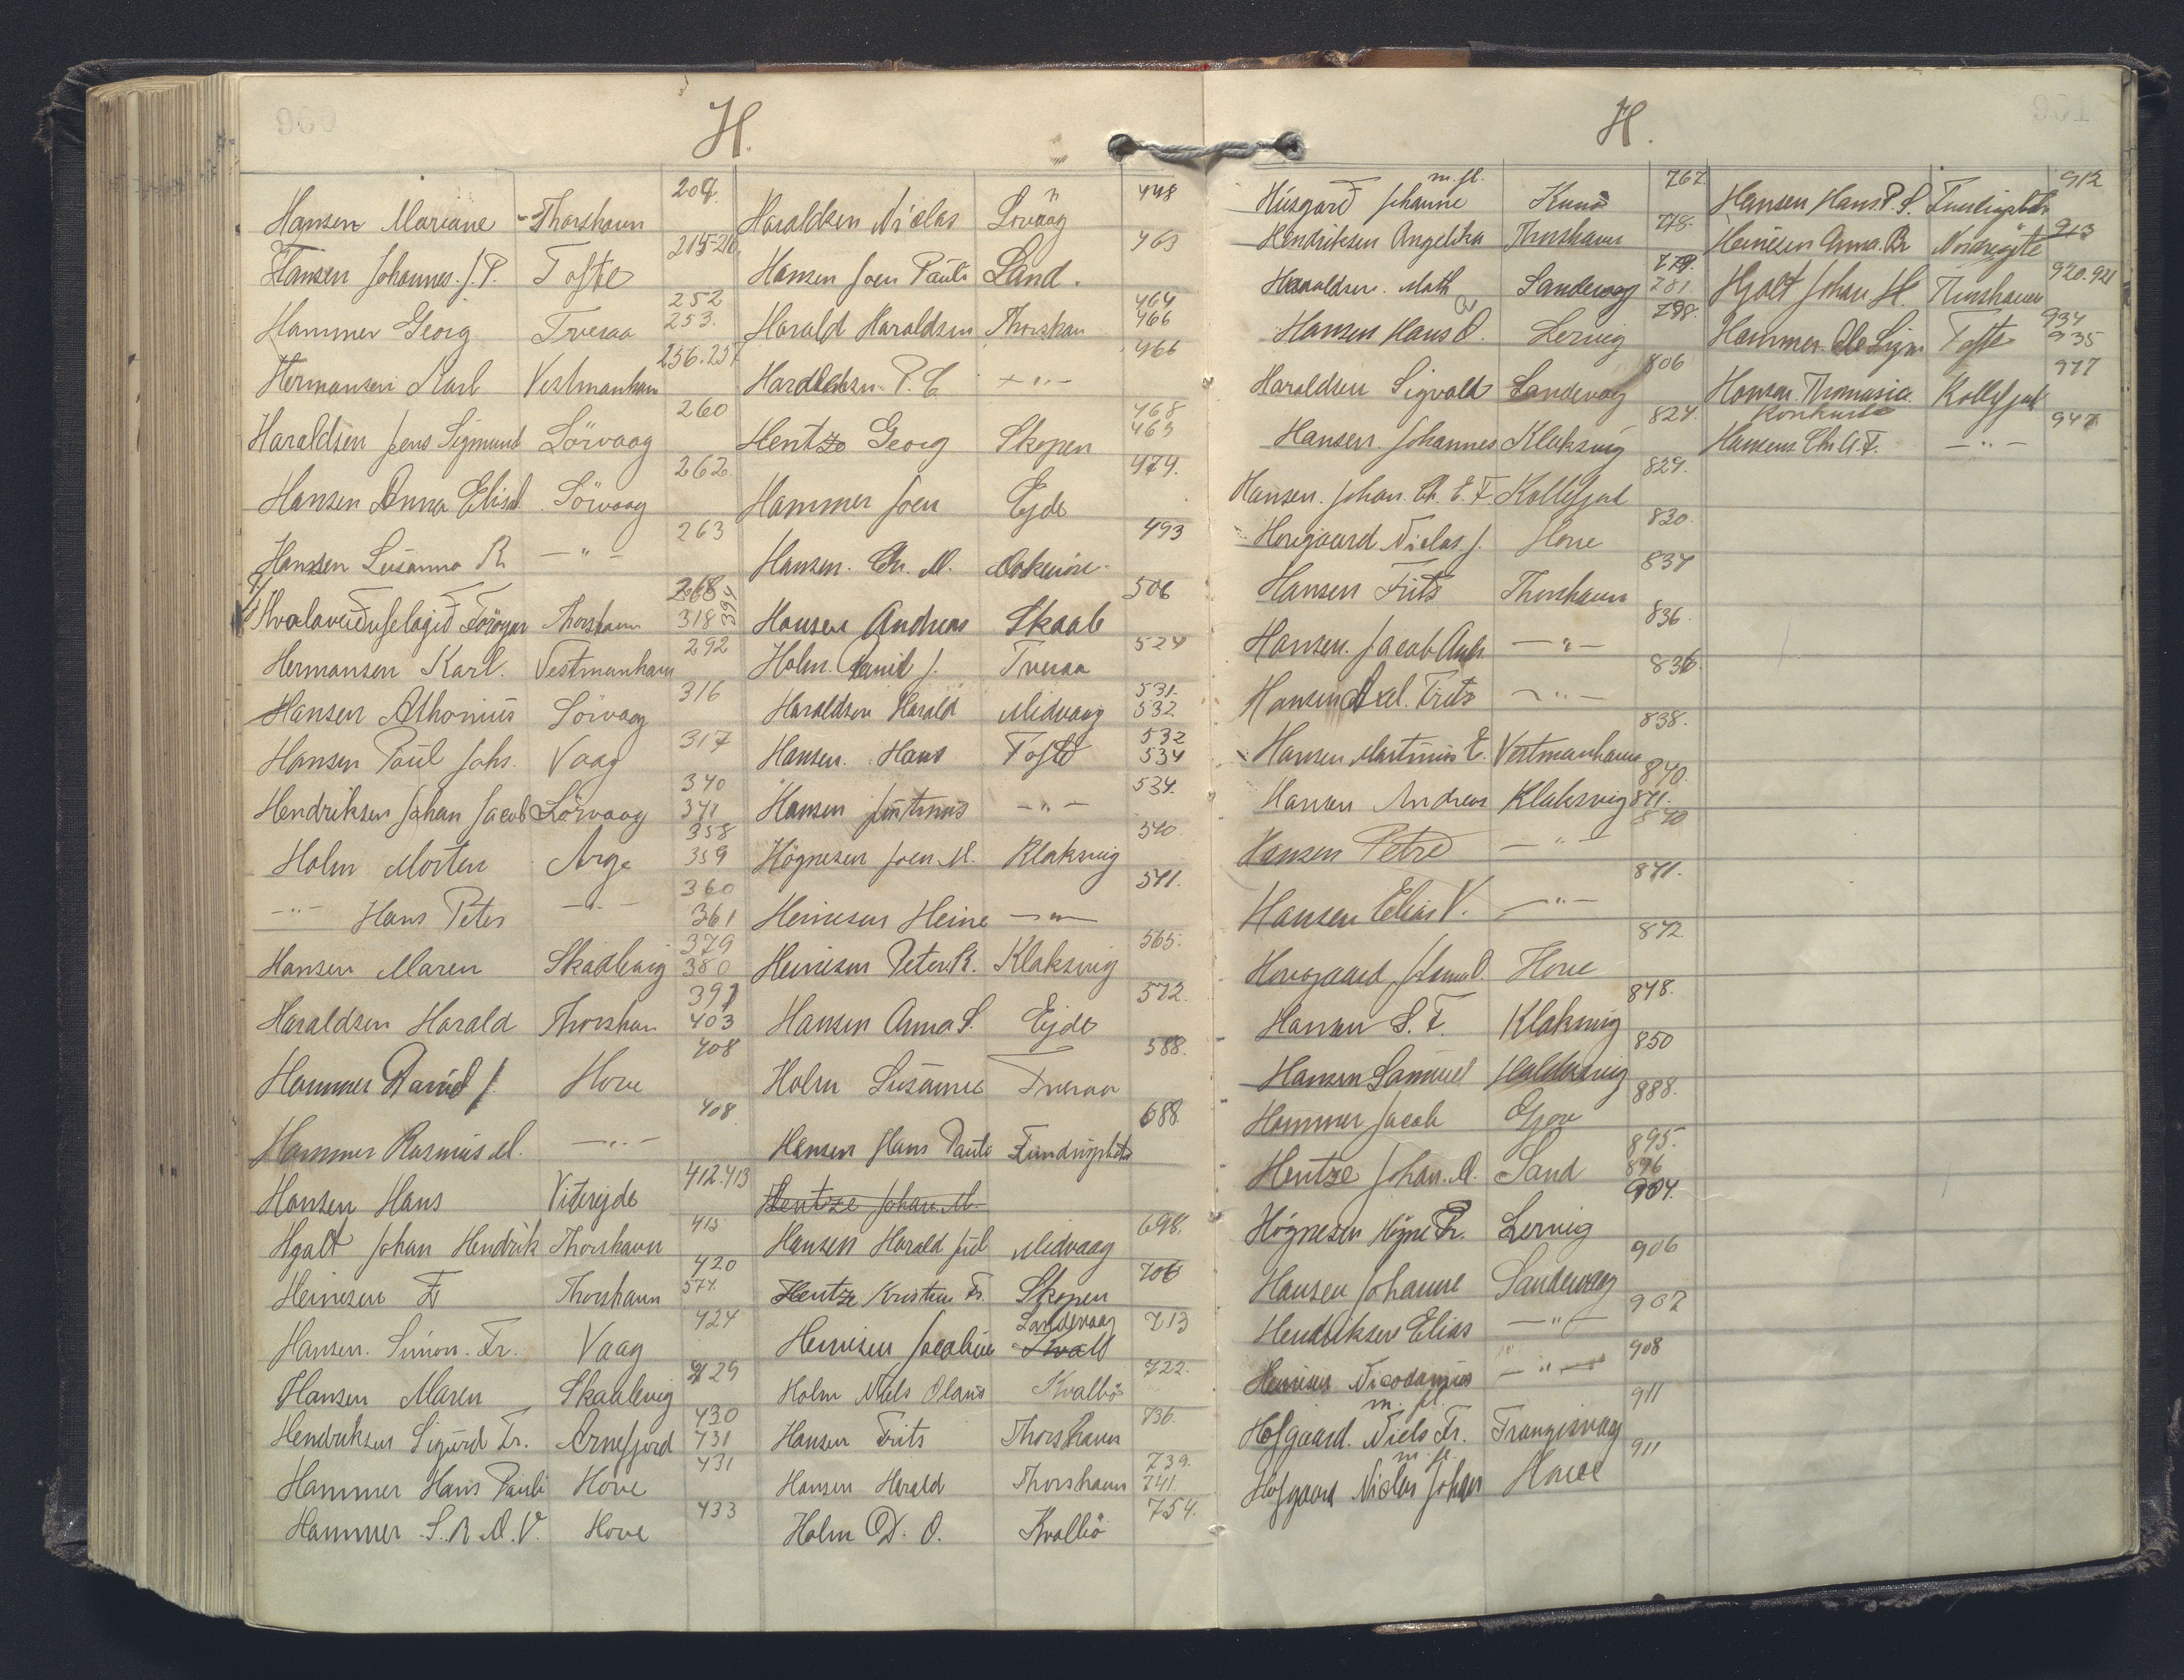 H.
Hansen Mariane Thorshavn 209.
Hansen Johannes. J. P. Tofte 215-216
Hammer Georg Tveraa 252 253.
Hermansen Karl Vestmanhavn 256.257
Haraldsen Jens Sigmund Sörvaag 260
Hansen Anna Elisab. Sörvaag 262.
Hansen Susanna R. —"— 263
Hvalaveiðufelagið Föroyar Thorshavn 268 318 394
Hermansen Karl. Vestmanhavn 292
Hansen Althonius Sörvaag 316
Hansen Poul Johs. Vaag 317
Hendriksen Johan Jacob Sörvaag 340 341
Holm Morten Arge 358 359
—"— Hans Peter —"— 360 361
Hansen Maren Skaalevig 379 380
Haraldsen Harald Thorshavn 391 403
Hammer David J. Hove 408
Hammer Rasmus M. —"— 408
Hansen Hans Viderejde 412.413
Hjalt Johan Hendrik Thorshavn 415
Heinesen Fr Thorshavn 420 574.
Hansen. Simon. Fr. Vaag 424
Hansen Maren Skaalevig 429
Hendriksen Sigurd Fr. Arnefjord 430 431
Hammer Hans Pauli Hove 431
Hammer S. R. M. V. Hove 433
Haraldsen Niclas Sörvaag 448
Hansen Joen Pauli Sand. 463
Harald Haraldsen Thorshavn 464 466
Haraldsen. P. C. —"— 466
Hentze Georg Skopen 468 463
Hammer Joen Ejde 474.
Hansen. Chr. M. 493
Hansen Andreas Skaalev 506
Holm. Daniel J. Tveraa 524
Haraldsen Harald Midvaag 531. 532
Hansen. Hans Tofte 532 534
Hansen Justinus —"— 534.
Högnesen Joen. M. Klaksvig 540.
Heinesen Heine —"— 541.
Heinesen Peter. R. Klaksvig 565.
Hansen Anna S. Ejde 572.
Holm Susanne Tveraa 588.
Hansen Hans Pauli Fundingsbotn 688.
Hentze Johan. M.
Hansen Harald Juel Midvaag 698.
Hentze Kristian Fr. Skopen 706
Heinesen Jacobine Sandevaag 713
Holm Niels Olaus Kvalbö 722.
Hansen Frits Thorshavn 736.
Hansen Harald Thorshavn 739. 741.
Holm D. O. Kvalbö 754.
H.
Húsgarð Johanne m. fl. Kunö 767.
Hendriksen Angelika Thorshavn 778.
Haraldsen. Math Sandevaag 779. 781.
Hansen Hans O. Lervig 798.
Haraldsen Sigvald Sandevaag 806
Hansen. Johannes Klaksvig 824.
Hansen. Johan. Chr. E. F. Kollefjord 829.
Horgaard Niclas J. Hove 830.
Hansen Frits Thorshavn 834
Hansen. Jacob Andr. —"— 836.
Hansen Axel. Frits —"— 836.
Hansen Martinus E. Vestmanhavn 838.
Hansen Andreas Klaksvig 840. 841.
Hansen Petre —"— 840
Hansen Elias V. —"— 841.
Hovgaard O. Hove 842
Hansen S. F. Klaksvig 848.
Hansen Samuel Haldersvig 850
Hammer Jacob Gjov 888.
Hentze Johan. M. Sand 895. 896
Högnesen Högne Fr. Lervig 904.
Hansen Johanne Sandevaag 906
Hendriksen Elias —"— 907
Heinesen Nicodamus —"— 908
m. fl.
Hofgaard. Niels Fr. Frangisvaag 911
m. fl.
Hofgaard Niclas Johan Hove 911
Hansen Hans. P. S. Fundingsbotn 912
Heinesen Anna. Br Nordregøte 913
Hjalt Johan H. Thorshavn 920.921
Hammer. Ole Sigm Tofte 934 935
Hansen. Thomasia Kollefjord 977
Hansens Chr. G. F. —"— 947